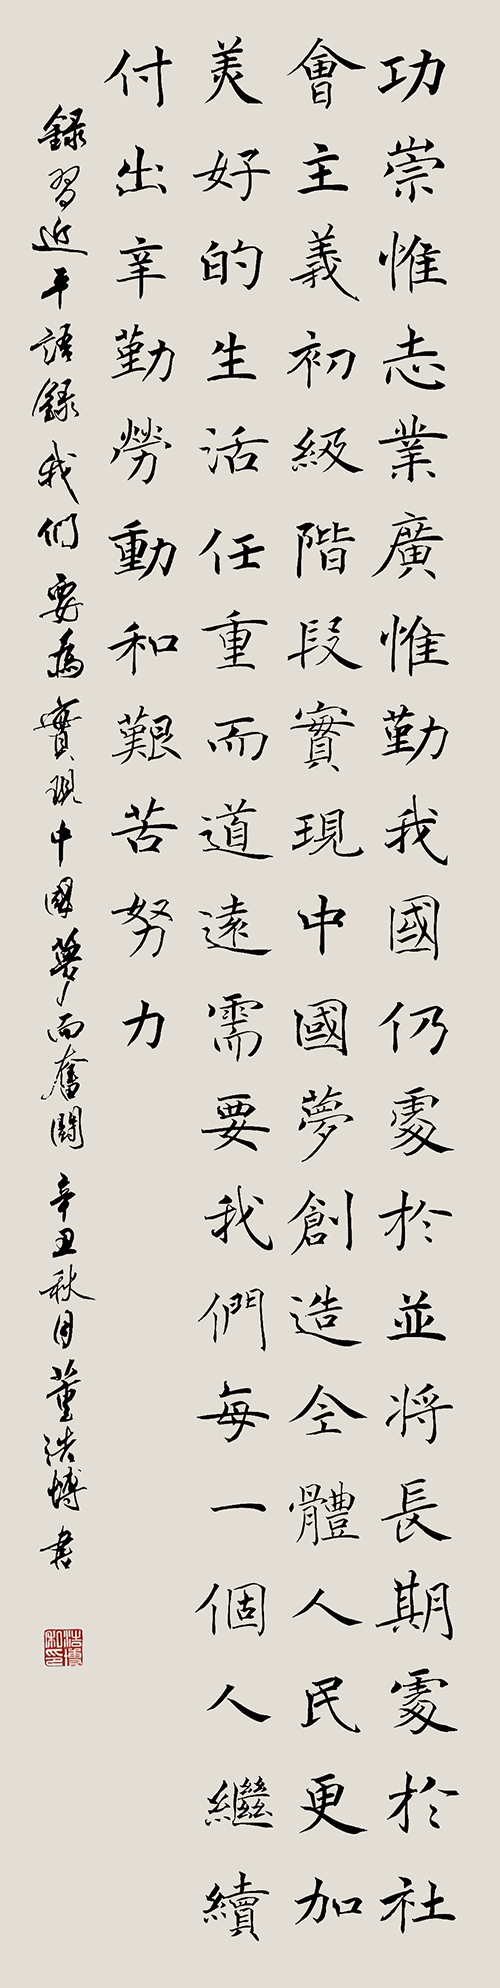 功崇惟志業廣惟勤我國仍處於並將長期處於社
會主義初級階段實現中國夢創造全體人民更加
美好的生活任重而道遠需要我們每一個人繼續
付出辛勤勞動和艱苦努力
錄習近平語錄我们要為實現中國夢而奮鬪辛丑秋月董浩博書